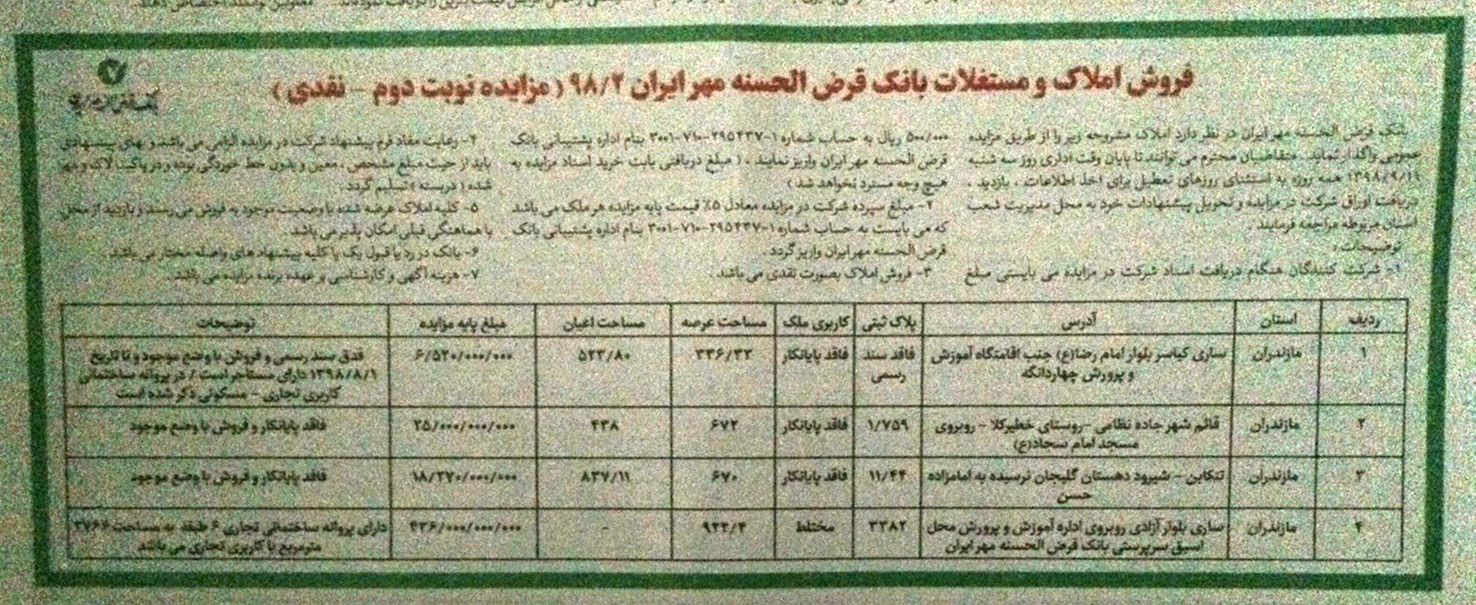 فروش املاک و مستغلات بانک قرض الحسنه مهر ایران ۹۸/۲ ( مزایده نوبت دوم - نقدی )
بانک قرض الحسنه مهر ایران در نظر دارد املاک مشروحه زیر را از طریق مزایده
عمومی واگذار نماید . متقاضیان محترم می توانند تا پایان وقت اداری روز سه شنبه
۱۳۹۸/۹/۱۹ همه روزه به استثنای روزهای تعطیل برای اخذ اطلاعات ، بازدید ،
دریافت اوراق شرکت در مزایده و تحویل پیشنهادات خود به محل مدیریت شعب
استان مربوطه مراجعه فرمایند .
توضیحات :
۱- شرکت کنندگان هنگام دریافت اسناد شرکت در مزایده می بایستی مبلغ
۵۰۰/۰۰۰ ریال به حساب شماره ۱-۲۹۵۲۳۷-۷۱۰-۳۰۰۱ بنام اداره پشتیبانی بانک
قرض الحسنه مهر ایران واریز نمایند . ( مبلغ دریافتی بابت خرید اسناد مزایده به
هیچ وجه مسترد نخواهد شد )
۲- مبلغ سپرده شرکت در مزایده معادل ۵٪ قیمت پایه مزایده هر ملک می باشد
که می بایست به حساب شماره ۱-۲۹۵۲۳۷-۷۱۰-۳۰۰۱ بنام اداره پشتیبانی بانک
قرض الحسنه مهر ایران واریز گردد .
۳- فروش املاک بصورت نقدی می باشد .
۴- رعایت مفاد فرم پیشنهاد شرکت در مزایده الزامی می باشد و بهای پیشنهادی
باید از حیث مبلغ مشخص ، معین و بدون خط خوردگی بوده و در پاکت لاک و مهر
شده ( دربسته ) تسلیم گردد .
۵- کلیه املاک عرضه شده با وضعیت موجود به فروش می رسند و بازدید از محل
با هماهنگی قبلی امکان پذیر می باشد.
۶- بانک در رد یا قبول یک یا کلیه پیشنهاد های واصله مختار می باشد .
۷- هزینه آگهی و کارشناسی بر عهده برنده مزایده می باشد.
ردیف استان آدرس پلاک ثبتی کاربری ملک مساحت عرصه مساحت اعیان مبلغ پایه مزایده توضیحات
۱ مازندران ساری کیاسر بلوار امام رضا(ع) جنب اقامتگاه آموزش و پرورش چهاردانگه فاقد سند رسمی فاقد پایانکار ۳۳۶/۳۲ ۵۲۳/۸۰ ۶/۵۲۰/۰۰۰/۰۰۰ فاقد سند رسمی و فروش با وضع موجود و تا تاریخ ۱۳۹۸/۸/۱ دارای مستاجر است / در پروانه ساختمانی کاربری تجاری - مسکونی ذکر شده است
۲ مازندران قائم شهر جاده نظامی -روستای خطیرکلا - روبروی مسجد امام سجاد(ع) ۱/۷۵۹ فاقد پایانکار ۶۷۲ ۴۳۸ ۲۵/۰۰۰/۰۰۰/۰۰۰ فاقد پایانکار و فروش با وضع موجود
۳ مازندران تنکابن - شیرود دهستان گلیجان نرسیده به امامزاده حسن ۱۱/۴۴ فاقد پایانکار ۶۷۰ ۸۳۷/۱۱ ۱۸/۲۷۰/۰۰۰/۰۰۰ فاقد پایانکار و فروش با وضع موجود
۴ مازندران ساری بلوار آزادی روبروی اداره آموزش و پرورش محل اسبق سرپرستی بانک قرض الحسنه مهر ایران ۳۳۸۲ مختلط ۹۲۲/۴ - ۴۳۶/۰۰۰/۰۰۰/۰۰۰ دارای پروانه ساختمانی تجاری ۶ طبقه به مساحت ۳۷۶۶ مترمربع با کاربری تجاری می باشد